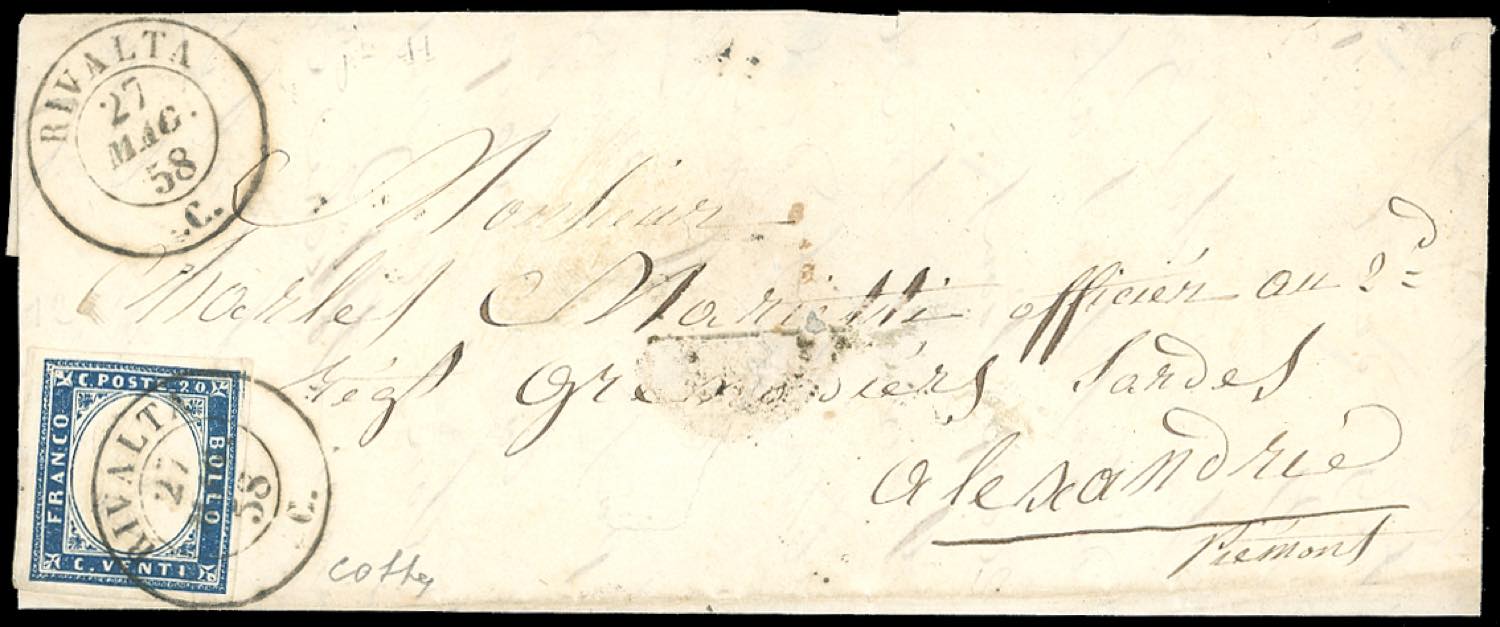 RIVALTA
27
MAG.
58
C.
Monsieur
Charles Marietti officier au 2d
régt Grenadiers Sardes
Alexandrié
Piémont
C. POSTE 20
FRANCO
BOLLO
C. VENTI
RIVALTA
27
58
C.